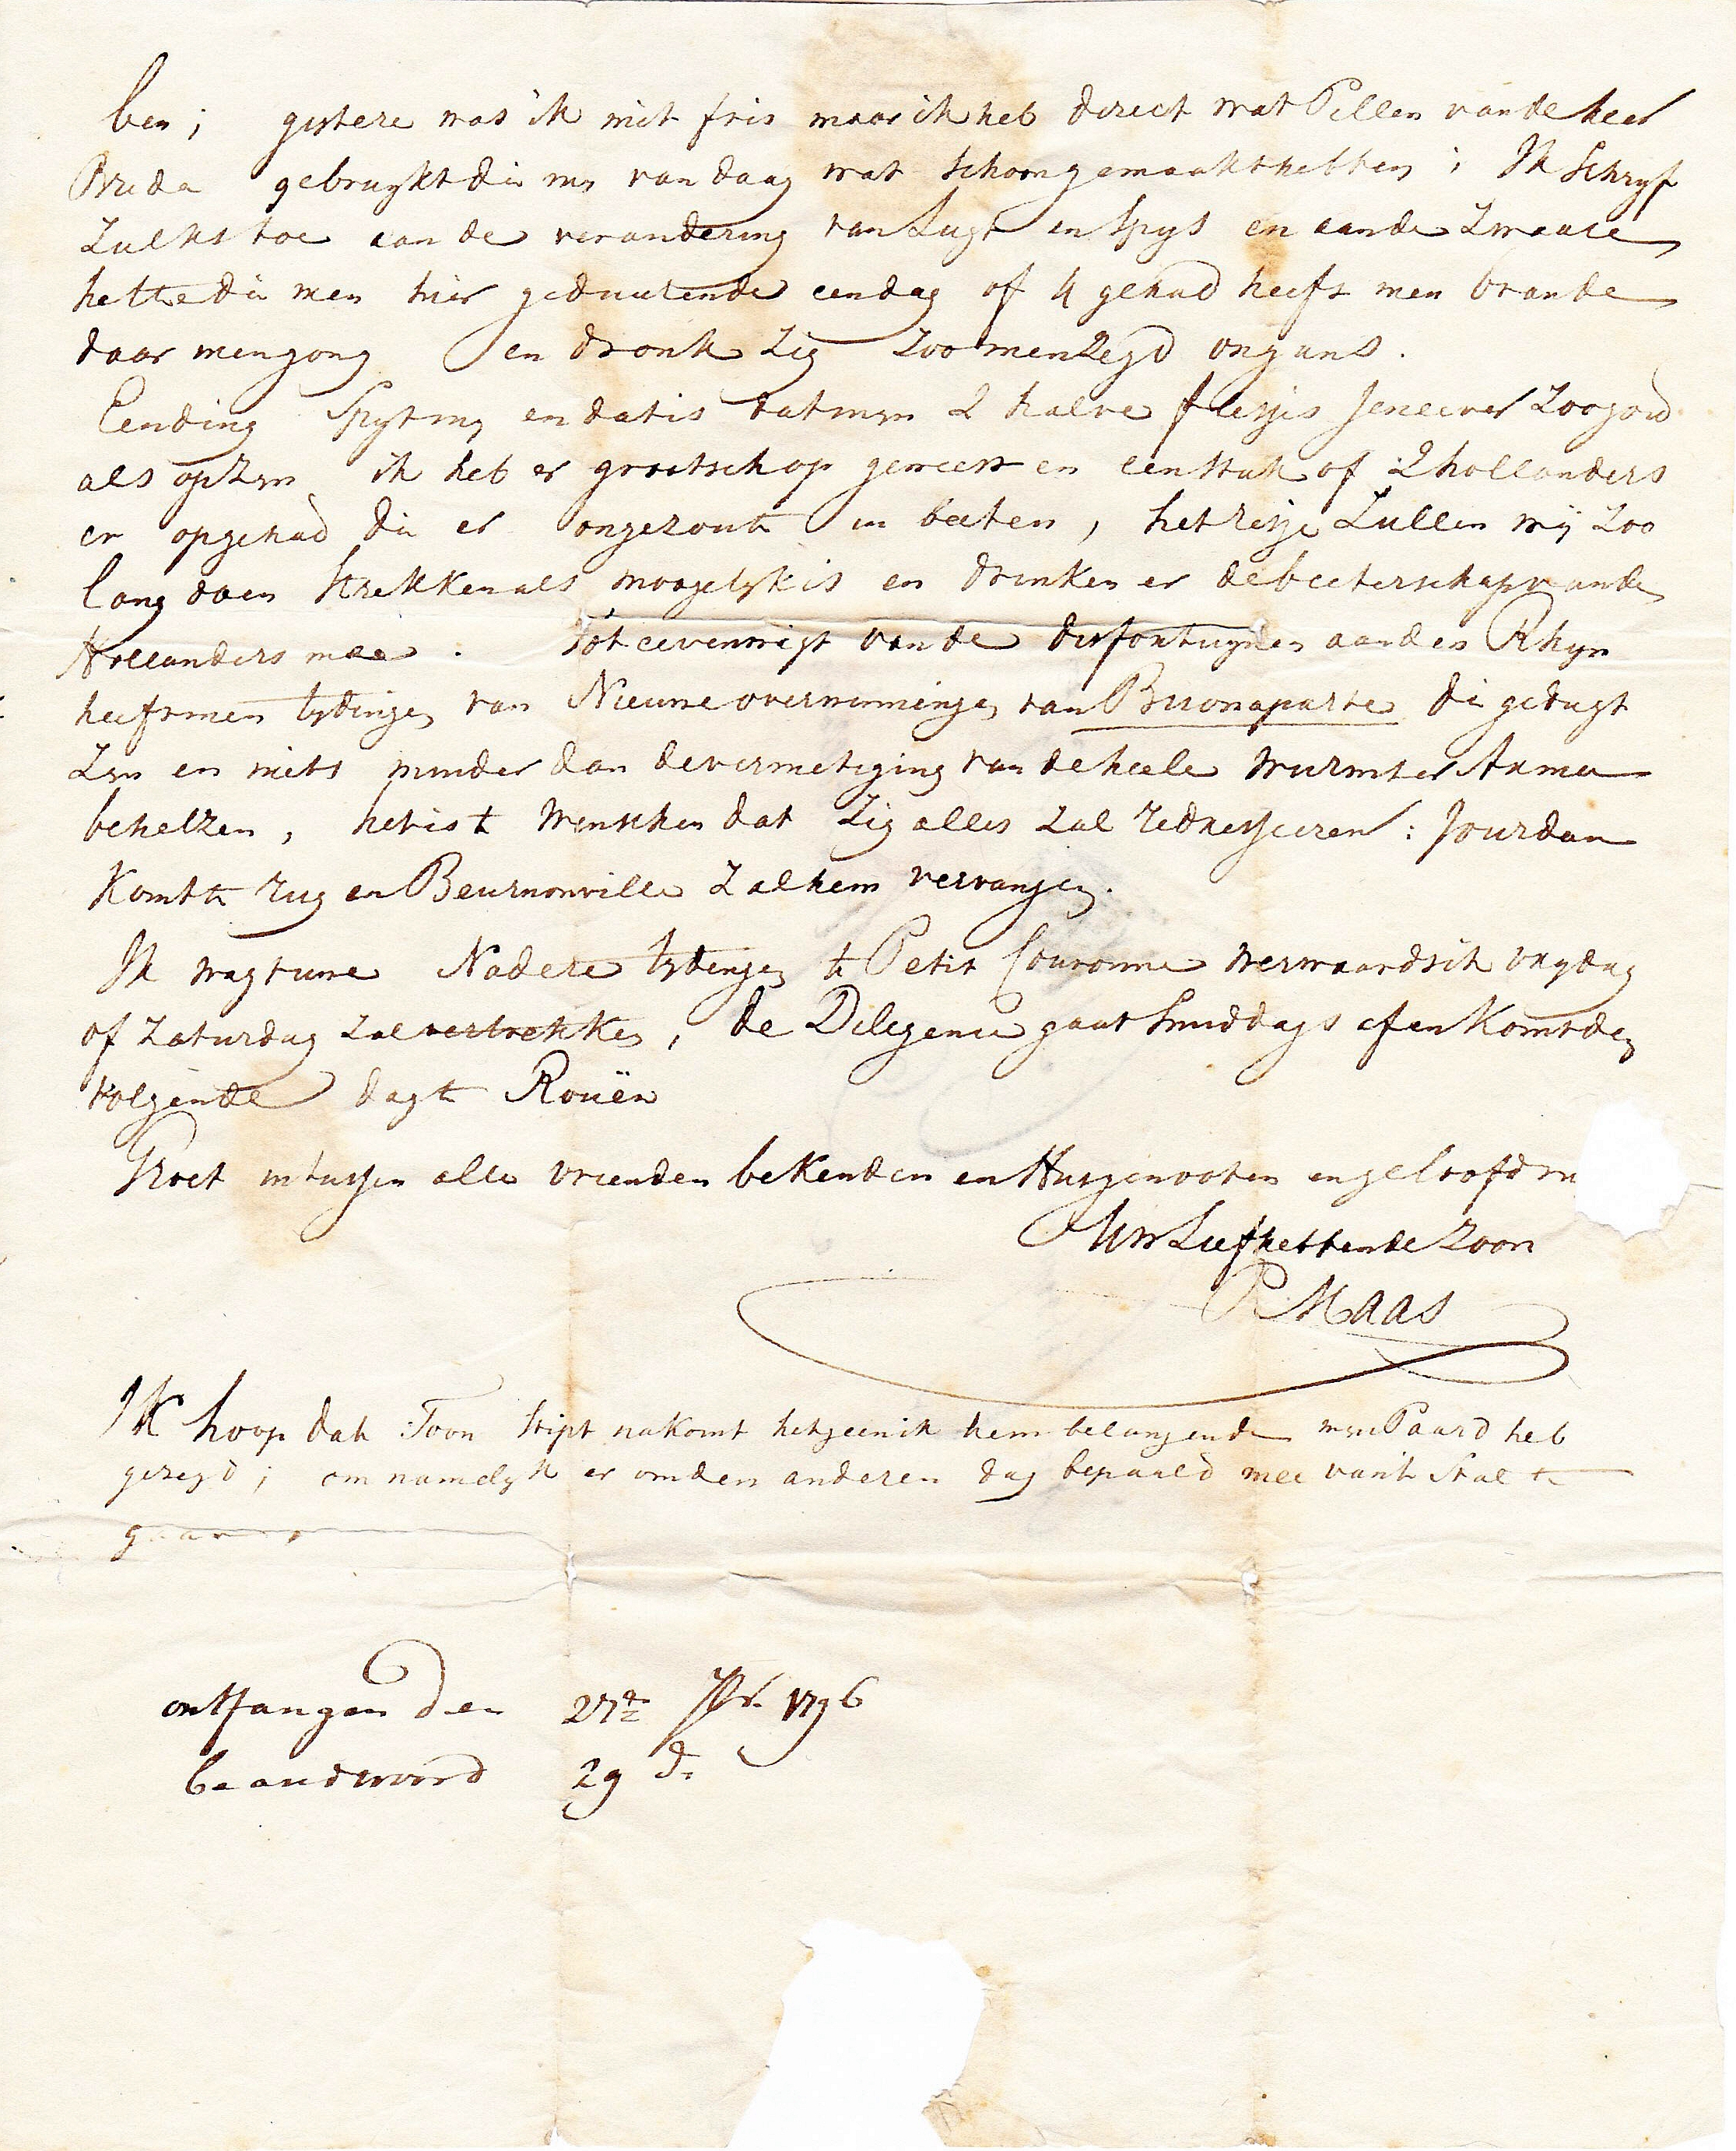 ben; gistere was ik niet fris maar ik heb direct wat Pillen van de heer
Breda gebruykt die my van daag wat schoongemaakt hebben; Ik Schryf
Zulks toe aan de verandering van Lugt en Spys en aan de Zwaare
hette die men hier geduurende een dag of 4 gehad heeft men brande
daar men gong en dronk Zig Zoo men Zegd ongans.
Een ding Spyt my en dat is dat myn 2 halve flesjes Jenever Zoo goed
als op Zyn ik heb er grootsch op geweest en een Stuk of 2 hollanders
er op gehad die er ongezout in beeten, het restje Zullen wij Zoo
lang doen Strekken als moogelyk is en drinken er de beeterschap van de
Hollanders mee. Tot eevenwigt van de disfortuynen aan den Rhyn
heeft men tydingen van Nieuwe overwinningen van Buonaparte die gedugt
Zyn en niets minder dan de vernietiging van de heele Wurmser Armee
behelzen, het is te Wenschen dat Zig alles Zal redresseeren: Jourdan
Komt te rug en Beurnonville Zal hem vervangen.
Ik wagt uwe Nadere tydingen te Petit Couronne werwaards ik vrydag
of Zaturdag Zal vertrekken, de Diligence gaat Smiddags af en Komt den
volgende dag te Rouën
Groet intussen alle vrienden bekenden en Huysgenooten en geloofd my
Uw Liefhebbende Zoon
P Maas
IK hoop dat Toon Stipt nakomt hetgeen ik hem belangende myn Paard heb
gezegd; om namelyk er om den anderen dag bepaald mee van Stal te
gaan.
ontfangen den 27e 7br. 1796
beandwoord 29 do